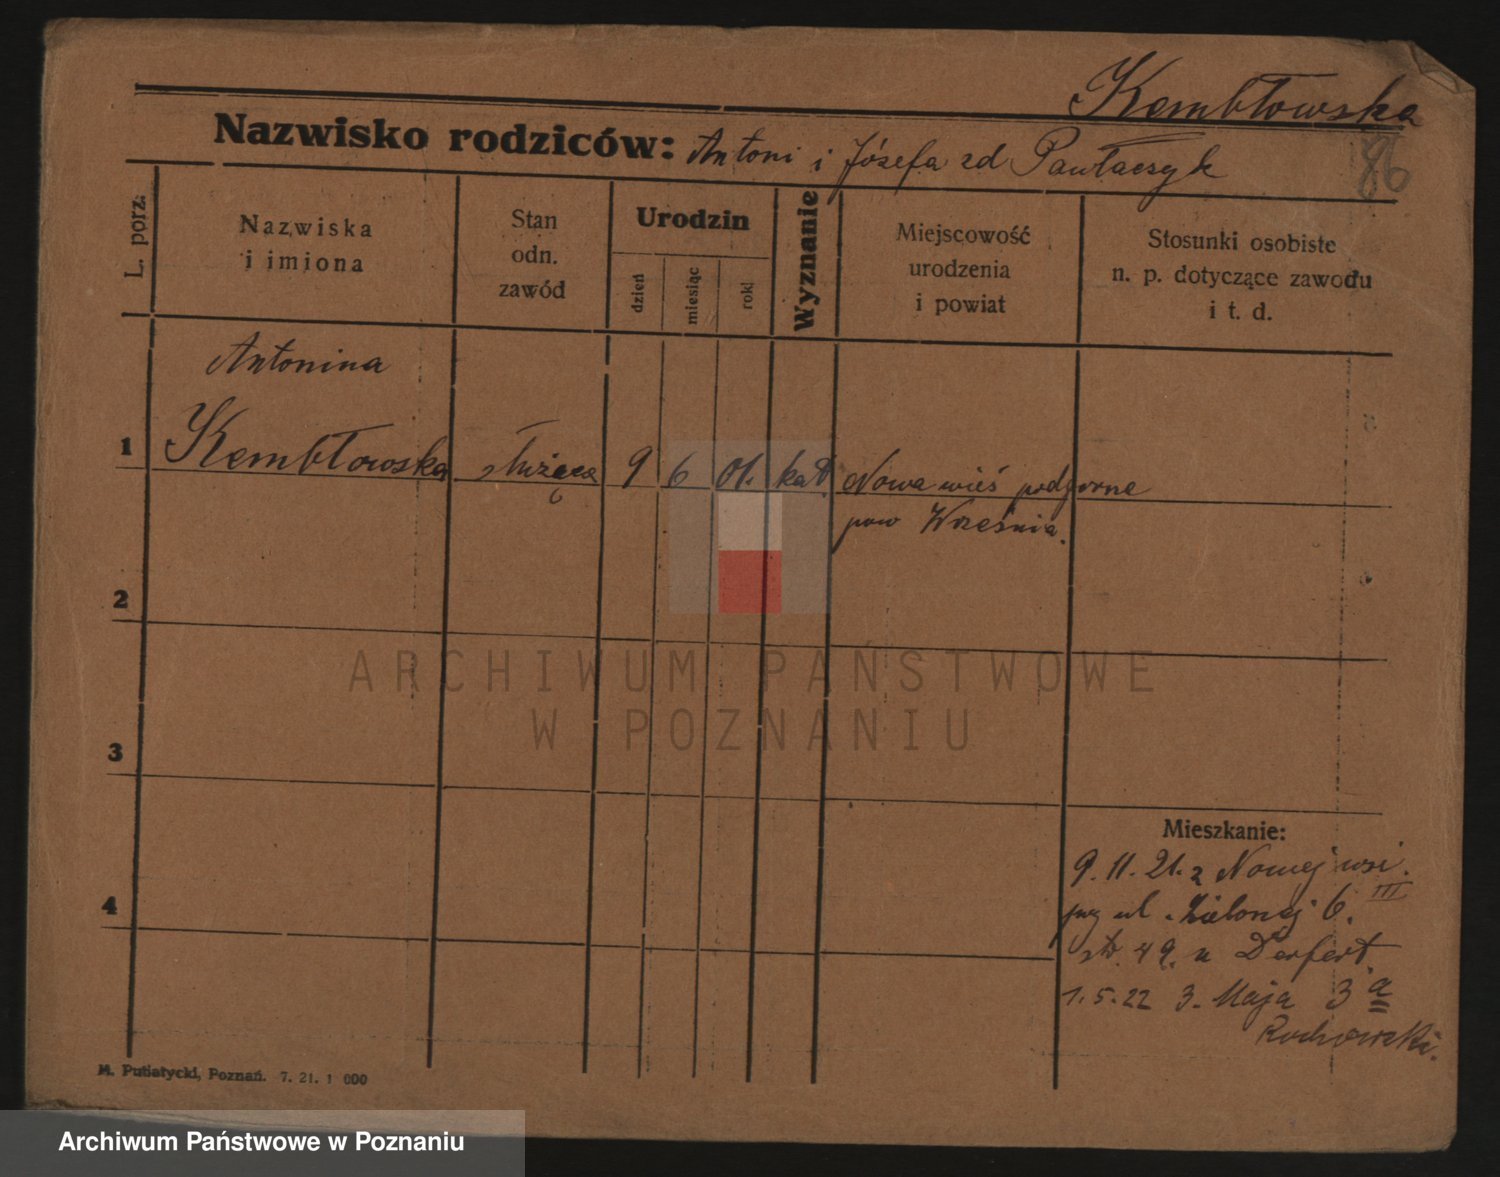 Kembłowska
Nazwisko rodziców: Antoni i Józefa zd Pawłaczyk
86
L. porz.
Nazwiska
i imiona
Stan
odn.
zawód
Urodzin
dzień
miesiąc
rok
Wyznanie
Miejscowość
urodzenia
i powiat
Stosunki osobiste
n. p. dotyczące zawodu
i t. d.
Antonina
1 Kembłowska służąca 9 6 01. kat. Nowawieś podgorna
pow Września.
2
3
4
Mieszkanie:
9. 11. 21. z Nowej wsi.
przy ul. Zielonej 6. III
str. 49. u Derfert.
1. 5. 22 3. Maja 3 a
Ruchowski.
M. Putiatycki, Poznań. 7. 21. 1 000
ARCHIWUM PAŃSTWOWE
W POZNANIU
Archiwum Państwowe w Poznaniu